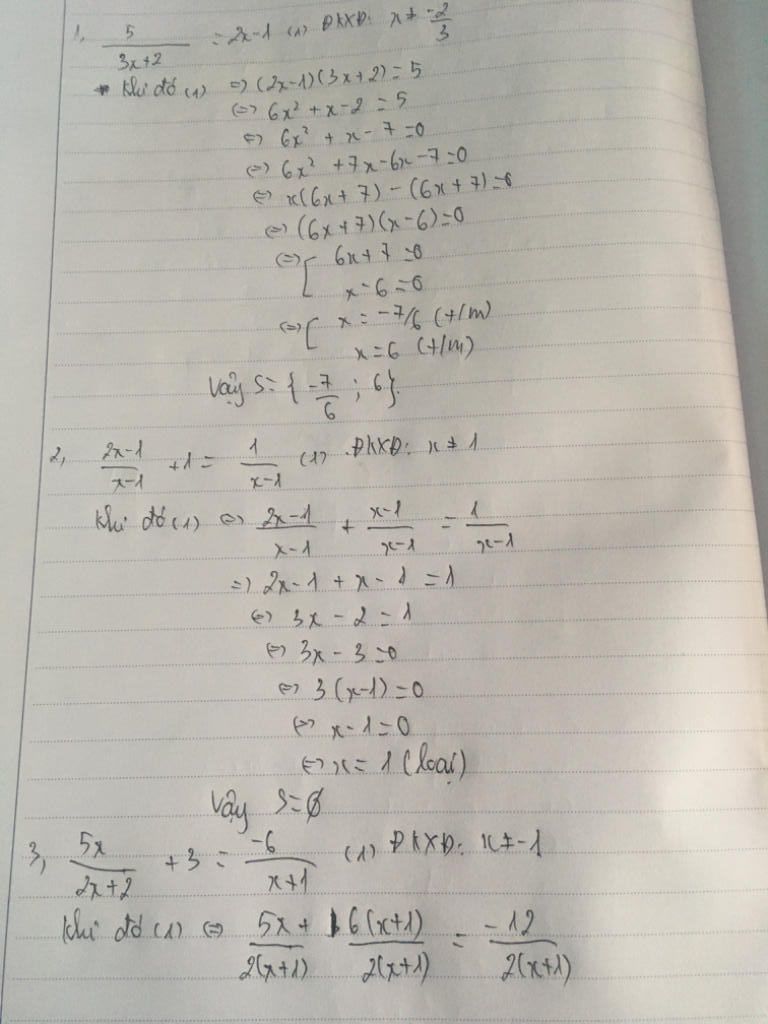 1, 5/(3x+2) = 2x-1 (1) ĐKXĐ: x ≠ -2/3
* Khi đó (1) => (2x-1)(3x+2) = 5
<=> 6x² + x - 2 = 5
<=> 6x² + x - 7 = 0
<=> 6x² + 7x - 6x - 7 = 0
<=> x(6x+7) - (6x+7) = 0
<=> (6x+7)(x-6) = 0
<=> [ 6x+7 = 0
x-6 = 0
<=> [ x = -7/6 (t/m)
x = 6 (t/m)
Vậy S = { -7/6 ; 6 }.
2, (2x-1)/(x-1) + 1 = 1/(x-1) (1) ĐKXĐ: x ≠ 1
Khi đó (1) <=> (2x-1)/(x-1) + (x-1)/(x-1) = 1/(x-1)
=> 2x-1 + x - 1 = 1
<=> 3x - 2 = 1
<=> 3x - 3 = 0
<=> 3(x-1) = 0
<=> x - 1 = 0
<=> x = 1 (loại)
Vậy S = ∅
3, 5x/(2x+2) + 3 = -6/(x+1) (1) ĐKXĐ: x ≠ -1
Khi đó (1) <=> 5x/(2(x+1)) + 6(x+1)/(2(x+1)) = -12/(2(x+1))